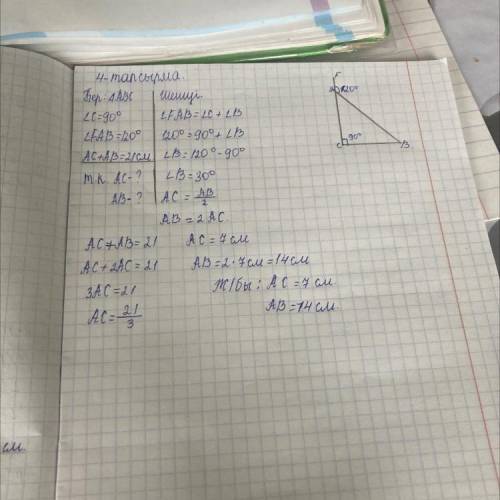 4-тапсырма.
Бер: ΔABC
∠C=90°
∠FAB=120°
AC+AB=21см
т.к AC-?
AB-?
Шешуі
∠FAB=∠C+∠B
120°=90°+∠B
∠B=120°-90°
∠B=30°
AC=AB/2
AB=2AC.
AC+AB=21
AC+2AC=21
3AC=21
AC=21/3
AC=7см
AB=2·7см=14см
Ж/бы: AC=7см
AB=14см.
F
A 120°
C 90° B
см.